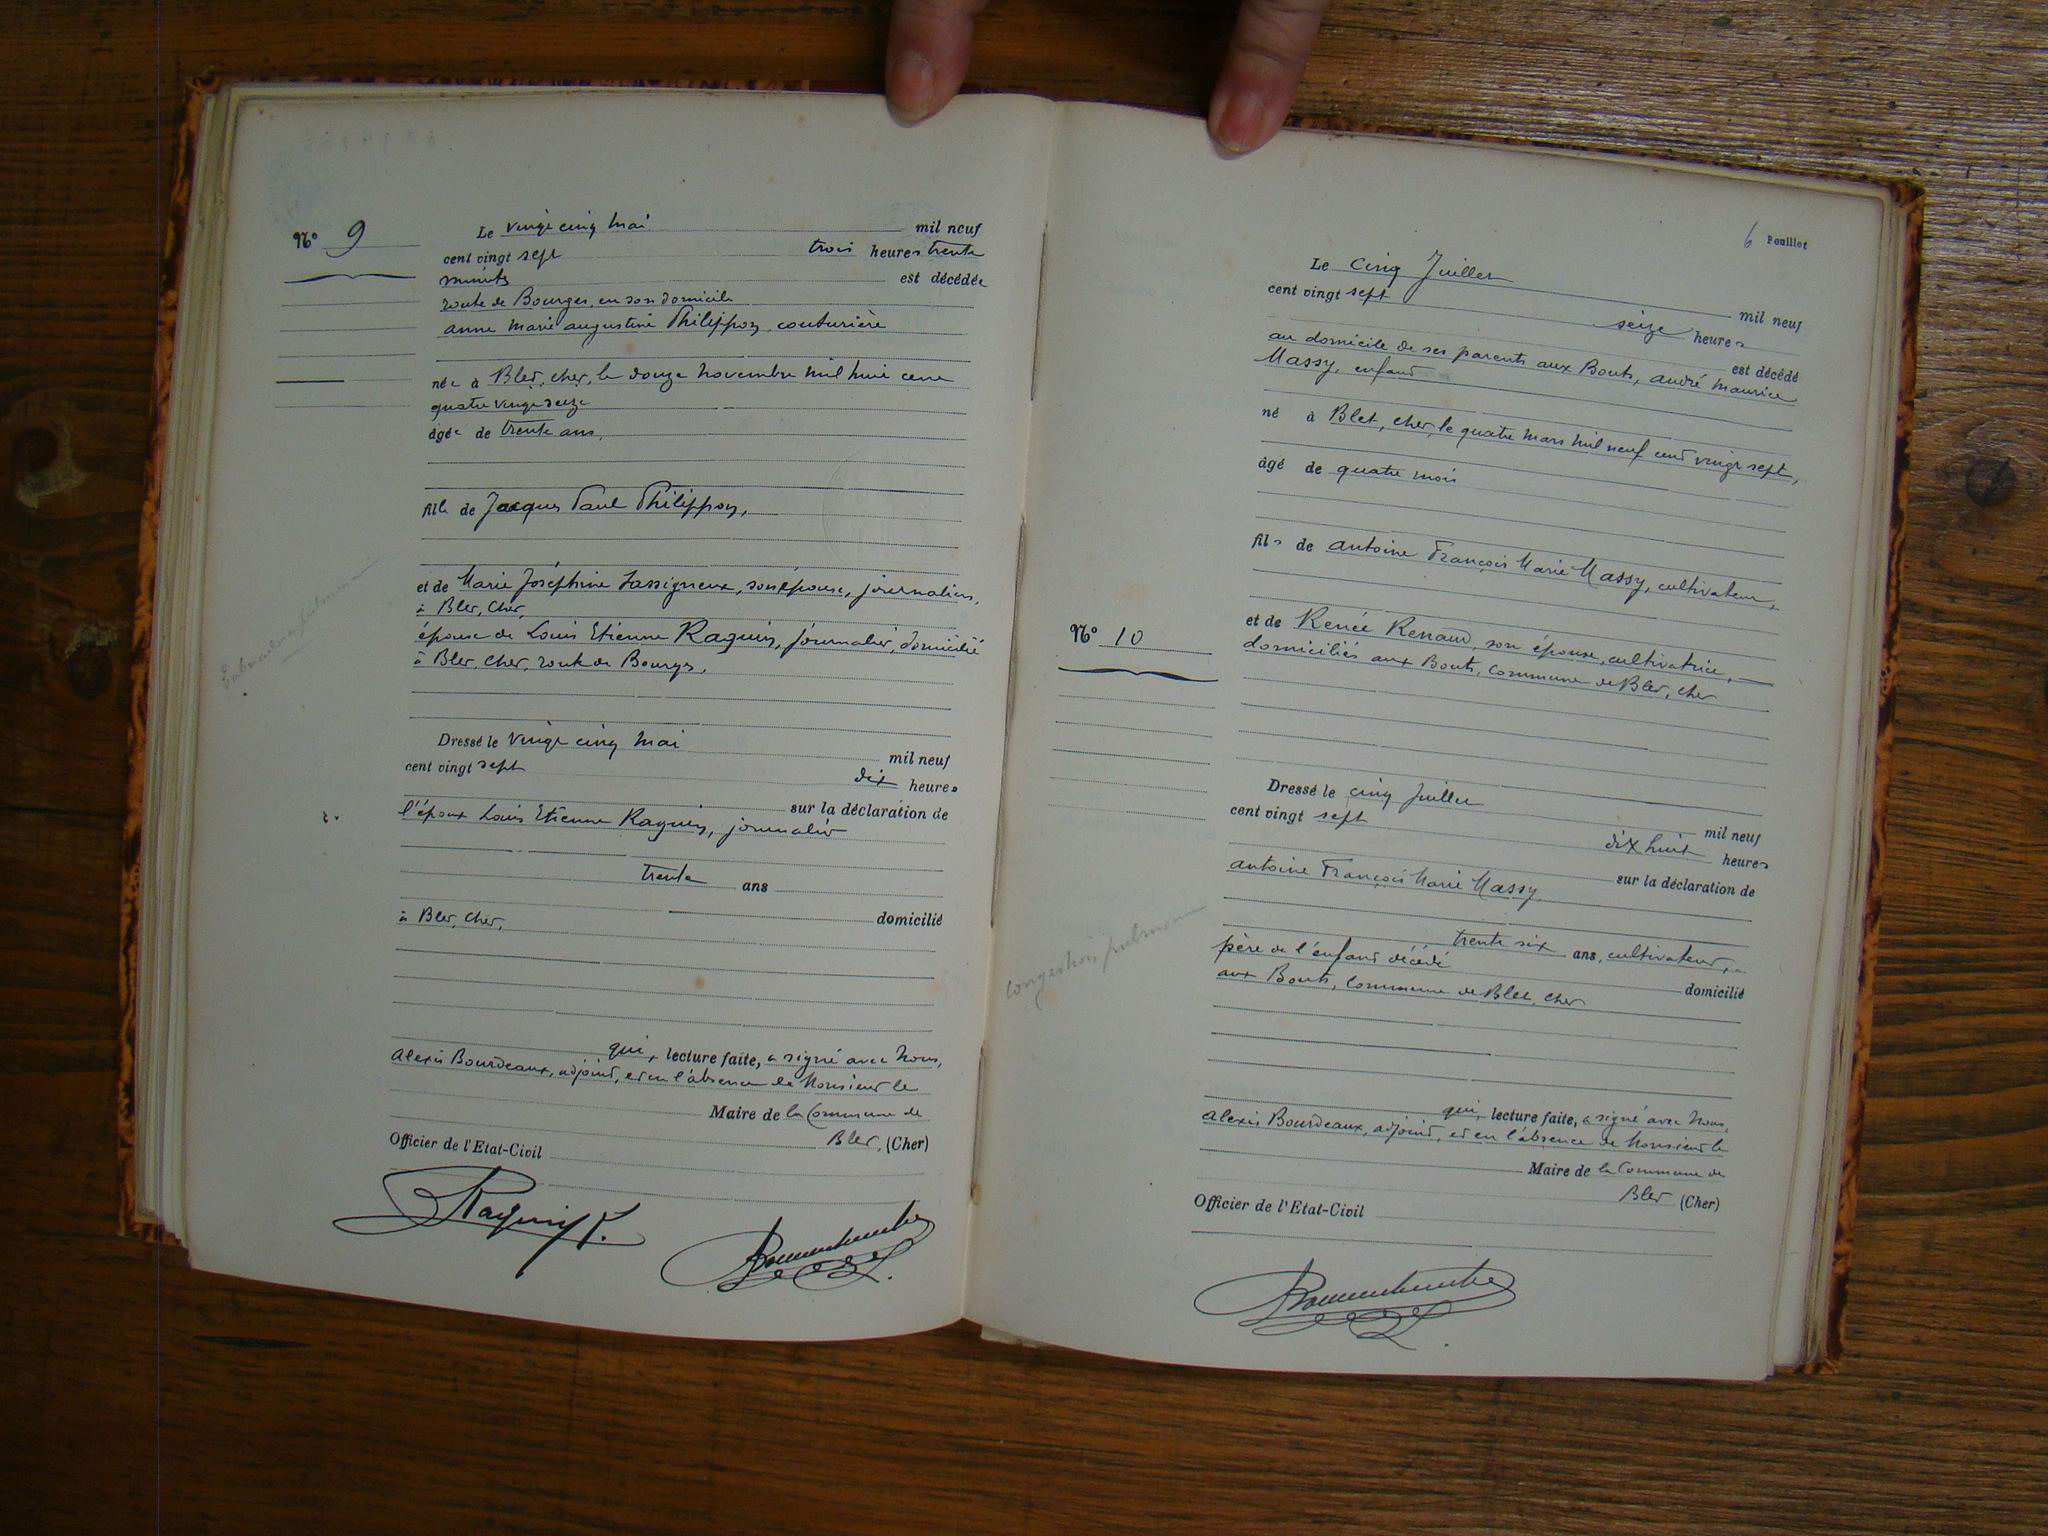 N° 9
Le vingt cinq mai mil neuf
cent vingt sept trois heures trente
minuts est décédée
route de Bourges, en son domicile
anne marie augustine Philippon, couturière
née à Blet, cher, le douze novembre mil huit cent
quatre vingt seize
âgée de trente ans,
fille de Jacques Paul Philippon,
et de Marie Joséphine Lassigneux, son épouse, journaliers,
à Blet, Cher,
épouse de Louis Etienne Raguin, journalier, domicilié
à Blet, Cher, route de Bourges,
Dressé le vingt cinq mai mil neuf
cent vingt sept dix heures
sur la déclaration de
l'époux Louis Etienne Raguin, journalier
trente ans
domicilié
à Blet, Cher,
qui, lecture faite, a signé avec Nous,
Alexis Bourdeaux, adjoint, et en l'absence de Monsieur le
Maire de la Commune de
Blet, (Cher)
Officier de l'Etat-Civil
Raguin
6 Feuillet
N° 10
Le cinq Juillet mil neuf
cent vingt sept seize heures
est décédé
au domicile de ses parents aux Bouts, andré maurice
Massy, enfant
né à Blet, cher, le quatre mars mil neuf cent vingt sept,
âgé de quatre mois
fils de antoine François Marie Massy, cultivateur,
et de Renée Renaud, son épouse, cultivatrice,
domiciliés aux Bouts, Commune de Blet, Cher
Dressé le cinq Juillet mil neuf
cent vingt sept dix huit heures
sur la déclaration de
antoine François Marie Massy
trente six ans, cultivateur,
père de l'enfant décédé domicilié
aux Bouts, Commune de Blet, Cher
congestion pulmonaire
qui, lecture faite, a signé avec Nous,
Alexis Bourdeaux, adjoint, et en l'absence de Monsieur le
Maire de la Commune de
Blet (Cher)
Officier de l'Etat-Civil